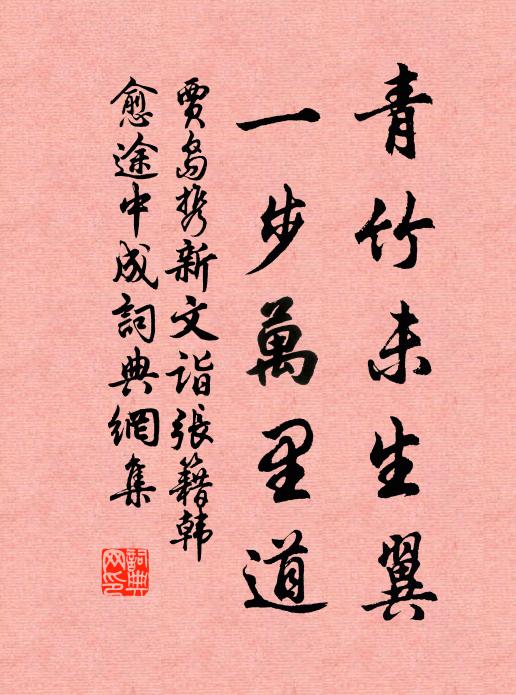 青竹未生翼
一步萬里道
賈島攜新文詣張籍韓
愈途中成詞典網集
詞典
网印